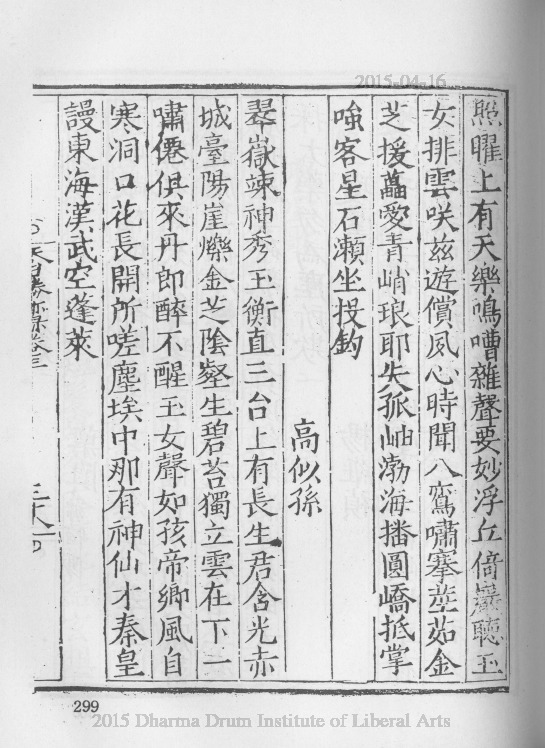 2015-04-16
照曜上有天樂鳴嘈雜聲要妙浮丘倚巖聽玉
女排雲咲茲遊償夙心時聞八鸞嘯搴茹金
芝援藟愛青峭琅耶失孤岫渤海播圓嶠抵掌
嗤客星石瀨坐投釣
高似孫
琴嶽竦神秀玉衡直三台上有長生君含光赤
城臺陽崖爍金芝陰壑生碧苔獨立雲在下一
嘯僊俱來丹郎醉不醒玉女聲如孩帝鄉風自
寒洞口花長開所嗟塵埃中那有神仙才秦皇
謾東海漢武空蓬萊
299
2015 Dharma Drum Institute of Liberal Arts